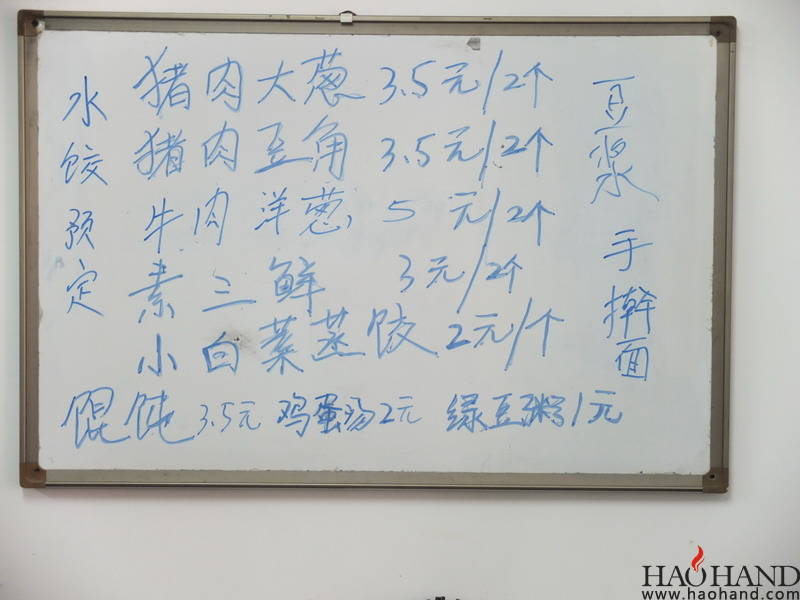 水饺预定
猪肉大葱 3.5元/2个
猪肉豆角 3.5元/2个
牛肉洋葱 5元/2个
素三鲜 3元/2个
小白菜蒸饺 2元/个
馄饨 3.5元 鸡蛋汤2元 绿豆粥1元
豆浆
手擀面
HAOHAND
www.haohand.com